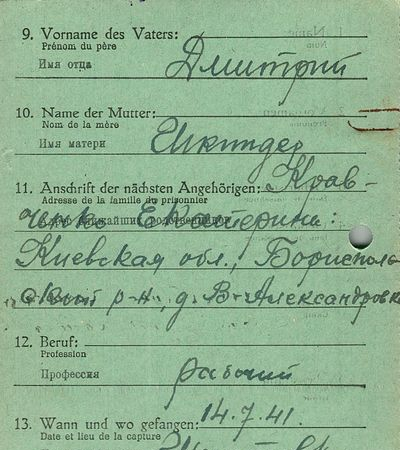 9. Vorname des Vaters:
Prénom du père
Имя отца
Дмитрий
10. Name der Mutter:
Nom de la mère
Имя матери
11. Anschrift der nächsten Angehörigen: Крав-
Adresse de la famille du prisonnier
Адрес ближайших родственников
ченко Екатерина:
Киевская обл., Борисполь
ский р-н, д. В-Александровка
12. Beruf:
Profession
Профессия
рабочий
13. Wann und wo gefangen: 14.7.41.
Date et lieu de la capture